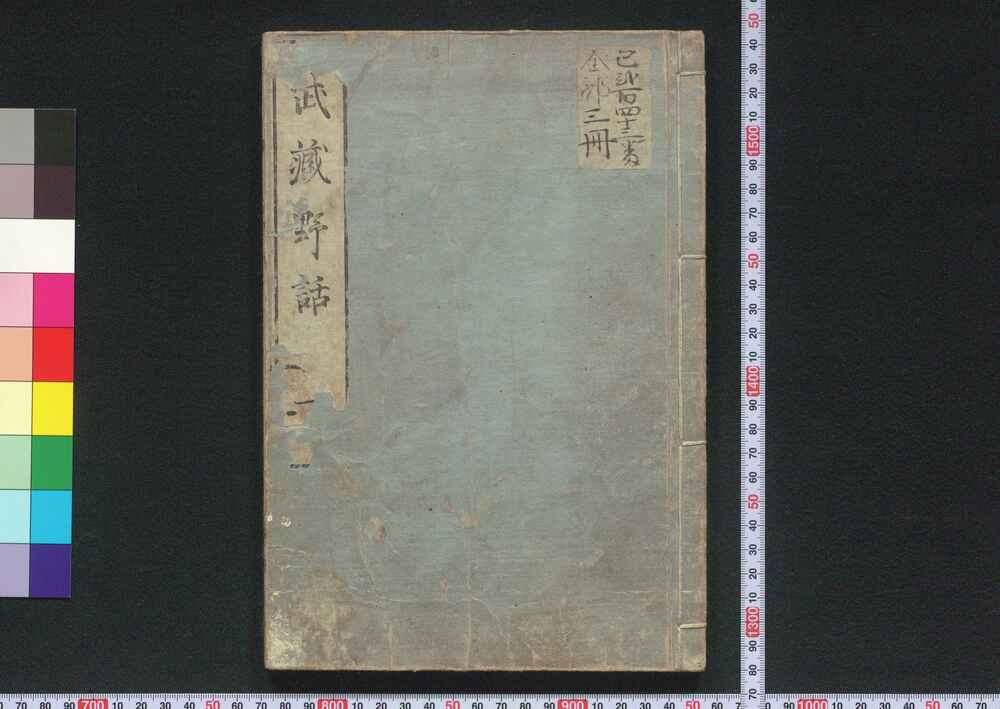 全部三冊
武藏野話
50
40
30
20
10
1500
90
80
70
60
50
40
30
20
10
1400
90
80
70
60
50
40
30
20
10
1300
90
80
70
70 80 90 700 10 20 30 40 50 60 70 80 90 800 10 20 30 40 50 60 70 80 90 900 10 20 30 40 50 60 80 90 1000 10 20 30 40 50 60 70